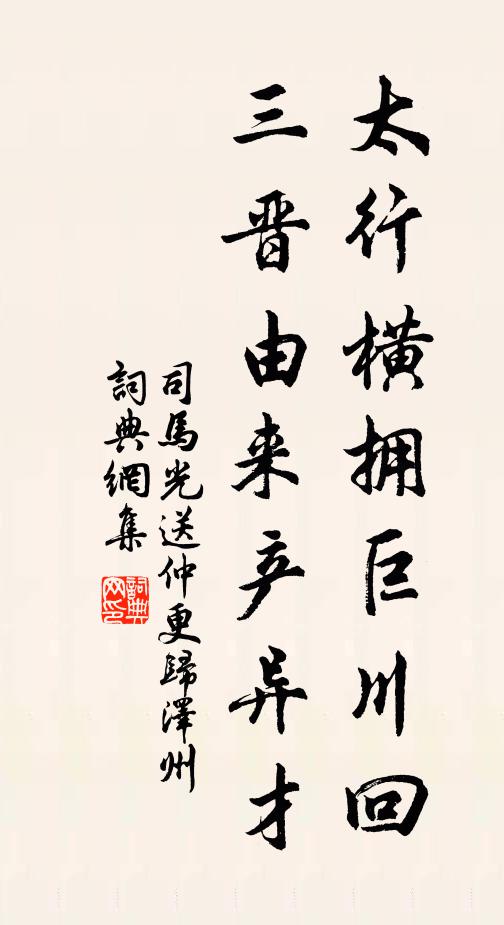 太行横拥巨川回
三晋由来产异才
司馬光送仲更歸澤州
詞典網集
詞典网印